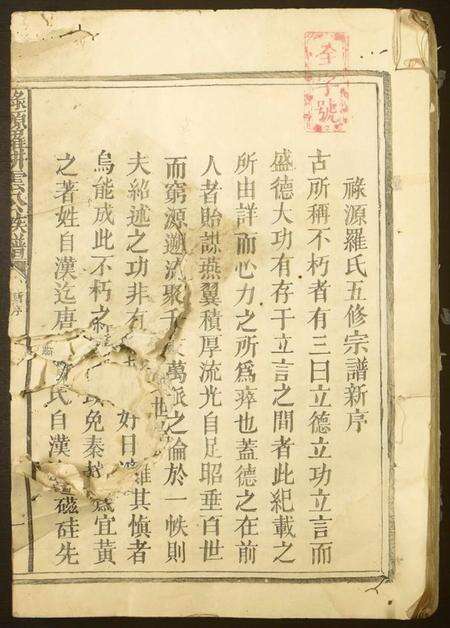 全字號
祿源羅氏五修宗譜新序
古所稱不朽者有三曰立德立功立言而
盛德大功有存于立言之間者此紀載之
所由詳而心力之所爲瘁也蓋德之在前
人者貽謀燕翼積厚流光自足昭垂百世
而窮源遡流聚千 萬派之倫於一帙則
夫紹述之功非有 世 好日 其愼者
烏能成此不朽之 免秦 爲宜黃
之著姓自漢迄唐 氏自漢 磁硅先
族譜
新序